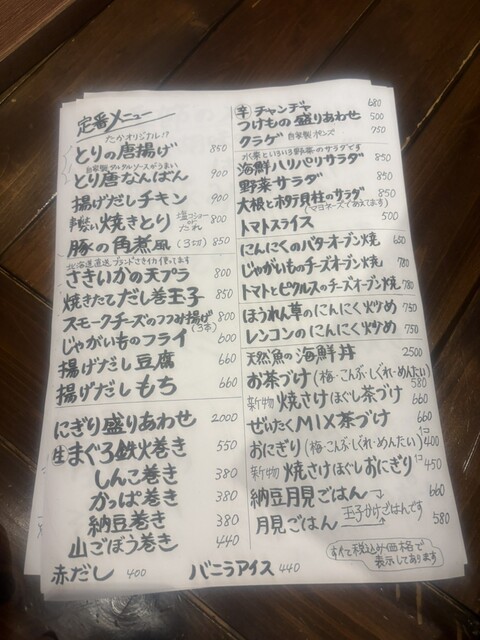 定番メニュー
たかオリジナル!?
とりの唐揚げ 850
自家製タルタルソースがうまい
とり唐なんばん 900
揚げだしチキン 900
串焼い 焼きとり 塩コショー or たれ 800
豚の角煮風 (3切) 850
北海道直送ブランドさきイカ使ってます
さきいかの天プラ 800
焼きたてだし巻玉子 850
スモークチーズのつつみ揚げ (3本) 800
じゃがいものフライ 600
揚げだし豆腐 660
揚げだしもち 660
にぎり盛りあわせ 2000
生まぐろ鉄火巻き 550
しんこ巻き 380
かっぱ巻き 380
納豆巻き 380
山ごぼう巻き 440
赤だし 400
バニラアイス 440
辛 チャンヂャ 680
つけもの盛りあわせ 500
クラゲ 自家製ポンズ 750
水菜といろいろ野菜のサラダです
海鮮パリパリサラダ 850
野菜サラダ 850
大根とホタテ貝柱のサラダ 850
(マヨネーズであえてます)
トマトスライス 500
にんにくのバターオーブン焼 650
じゃがいものチーズオーブン焼 780
トマトとピクルスのチーズオーブン焼 780
ほうれん草のにんにく炒め 750
レンコンのにんにく炒め 750
天然魚の海鮮丼 2500
お茶づけ (梅・こんぶ・しぐれ・めんたい) 580
新物 焼さけほぐし茶づけ 660
ぜいたくMIX茶づけ 660
おにぎり (梅・こんぶ・しぐれ・めんたい) 1コ 400
新物 焼さけほぐしおにぎり 1コ 450
納豆月見ごはん 660
玉子かけごはんです
月見ごはん 580
すべて税込み価格で
表示してあります